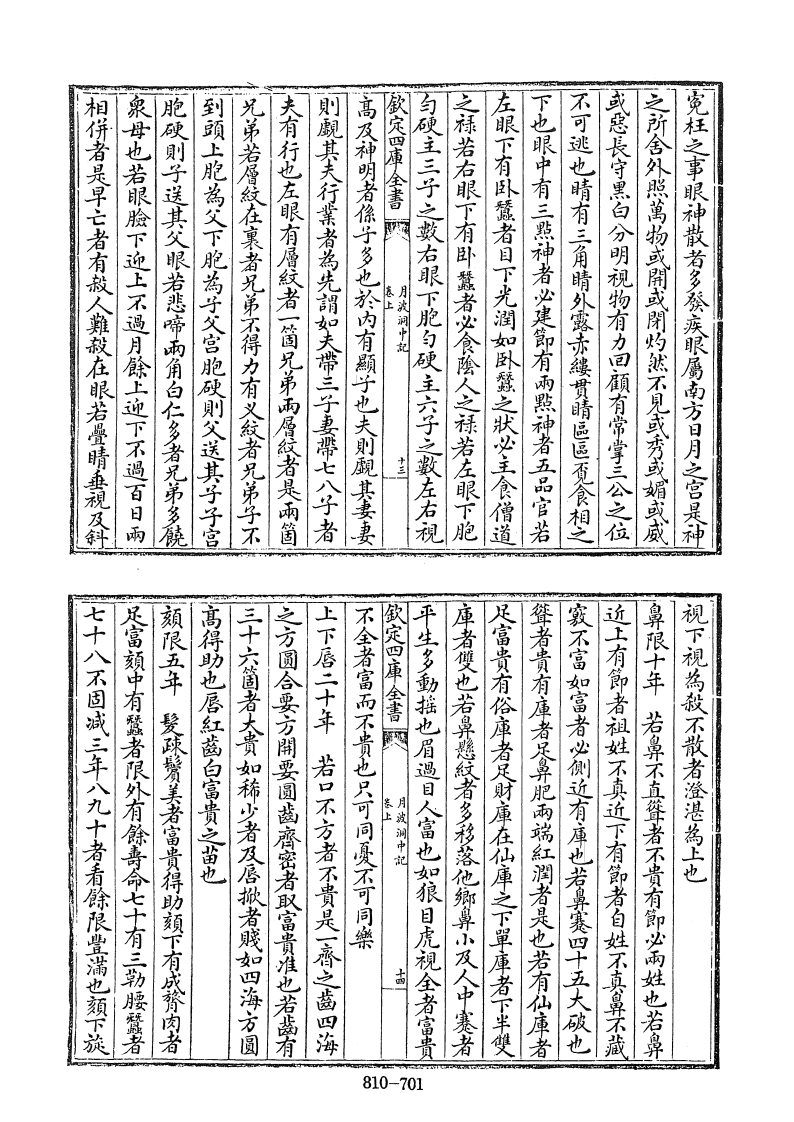 寃枉之事眼神散者多發疾眼屬南方日月之宫是神
之所舍外照萬物或開或閉灼然不見或秀或媚或威
或惡長守黑白分明視物有力回顧有常掌三公之位
不可逃也睛有三角睛外露赤縷貫睛區區覓食相之
下也眼中有三㸃神者必建節有兩㸃神者五品官若
左眼下有卧蠶者目下光潤如卧蠶之狀必主食僧道
之禄若右眼下有卧蠶者必食陰人之禄若左眼下胞
勻硬主三子之數右眼下胞勻硬主六子之數左右視
欽定四庫全書
月波洞中記
卷上
十三
髙及神明者係子多也於内有顯子也夫則觀其妻妻
則觀其夫行業者為先謂如夫帶三子妻帶七八子者
夫有行也左眼有層紋者一箇兄弟兩層紋者是兩箇
兄弟若層紋在裏者兄弟不得力有义紋者兄弟子不
到頭上胞為父下胞為子父宫胞硬則父送其子子宫
胞硬則子送其父眼若悲啼兩角白仁多者兄弟多饒
衆母也若眼臉下迎上不過月餘上迎下不過百日兩
相併者是早亡者有殺人難殺在眼若疊睛垂視及斜
視下視為殺不散者澄湛為上也
鼻限十年　若鼻不直聳者不貴有節必兩姓也若鼻
近上有節者祖姓不真近下有節者自姓不真鼻不藏
竅不富如富者必側近有庫也若鼻蹇四十五大破也
聳者貴有庫者足鼻肥兩端紅潤者是也若有仙庫者
足富貴有俗庫者足財庫在仙庫之下單庫者下半雙
庫者雙也若鼻懸紋者多移落他鄉鼻小及人中蹇者
平生多動揺也眉過目人富也如狼目虎視全者富貴
欽定四庫全書
月波洞中記
卷上
十四
不全者富而不貴也只可同憂不可同樂
上下唇二十年　若口不方者不貴是一齊之齒四海
之方圓合要方開要圓齒齊密者取富貴准也若齒有
三十六箇者大貴如稀少者及唇掀者賤如四海方圓
髙得助也唇紅齒白富貴之苗也
頦限五年　髮疎鬢美者富貴得助頦下有成臍肉者
足富頦中有蠶者限外有餘壽命七十有三勒腰蠶者
七十八不固減三年八九十者看餘限豐滿也頦下旋
810-701